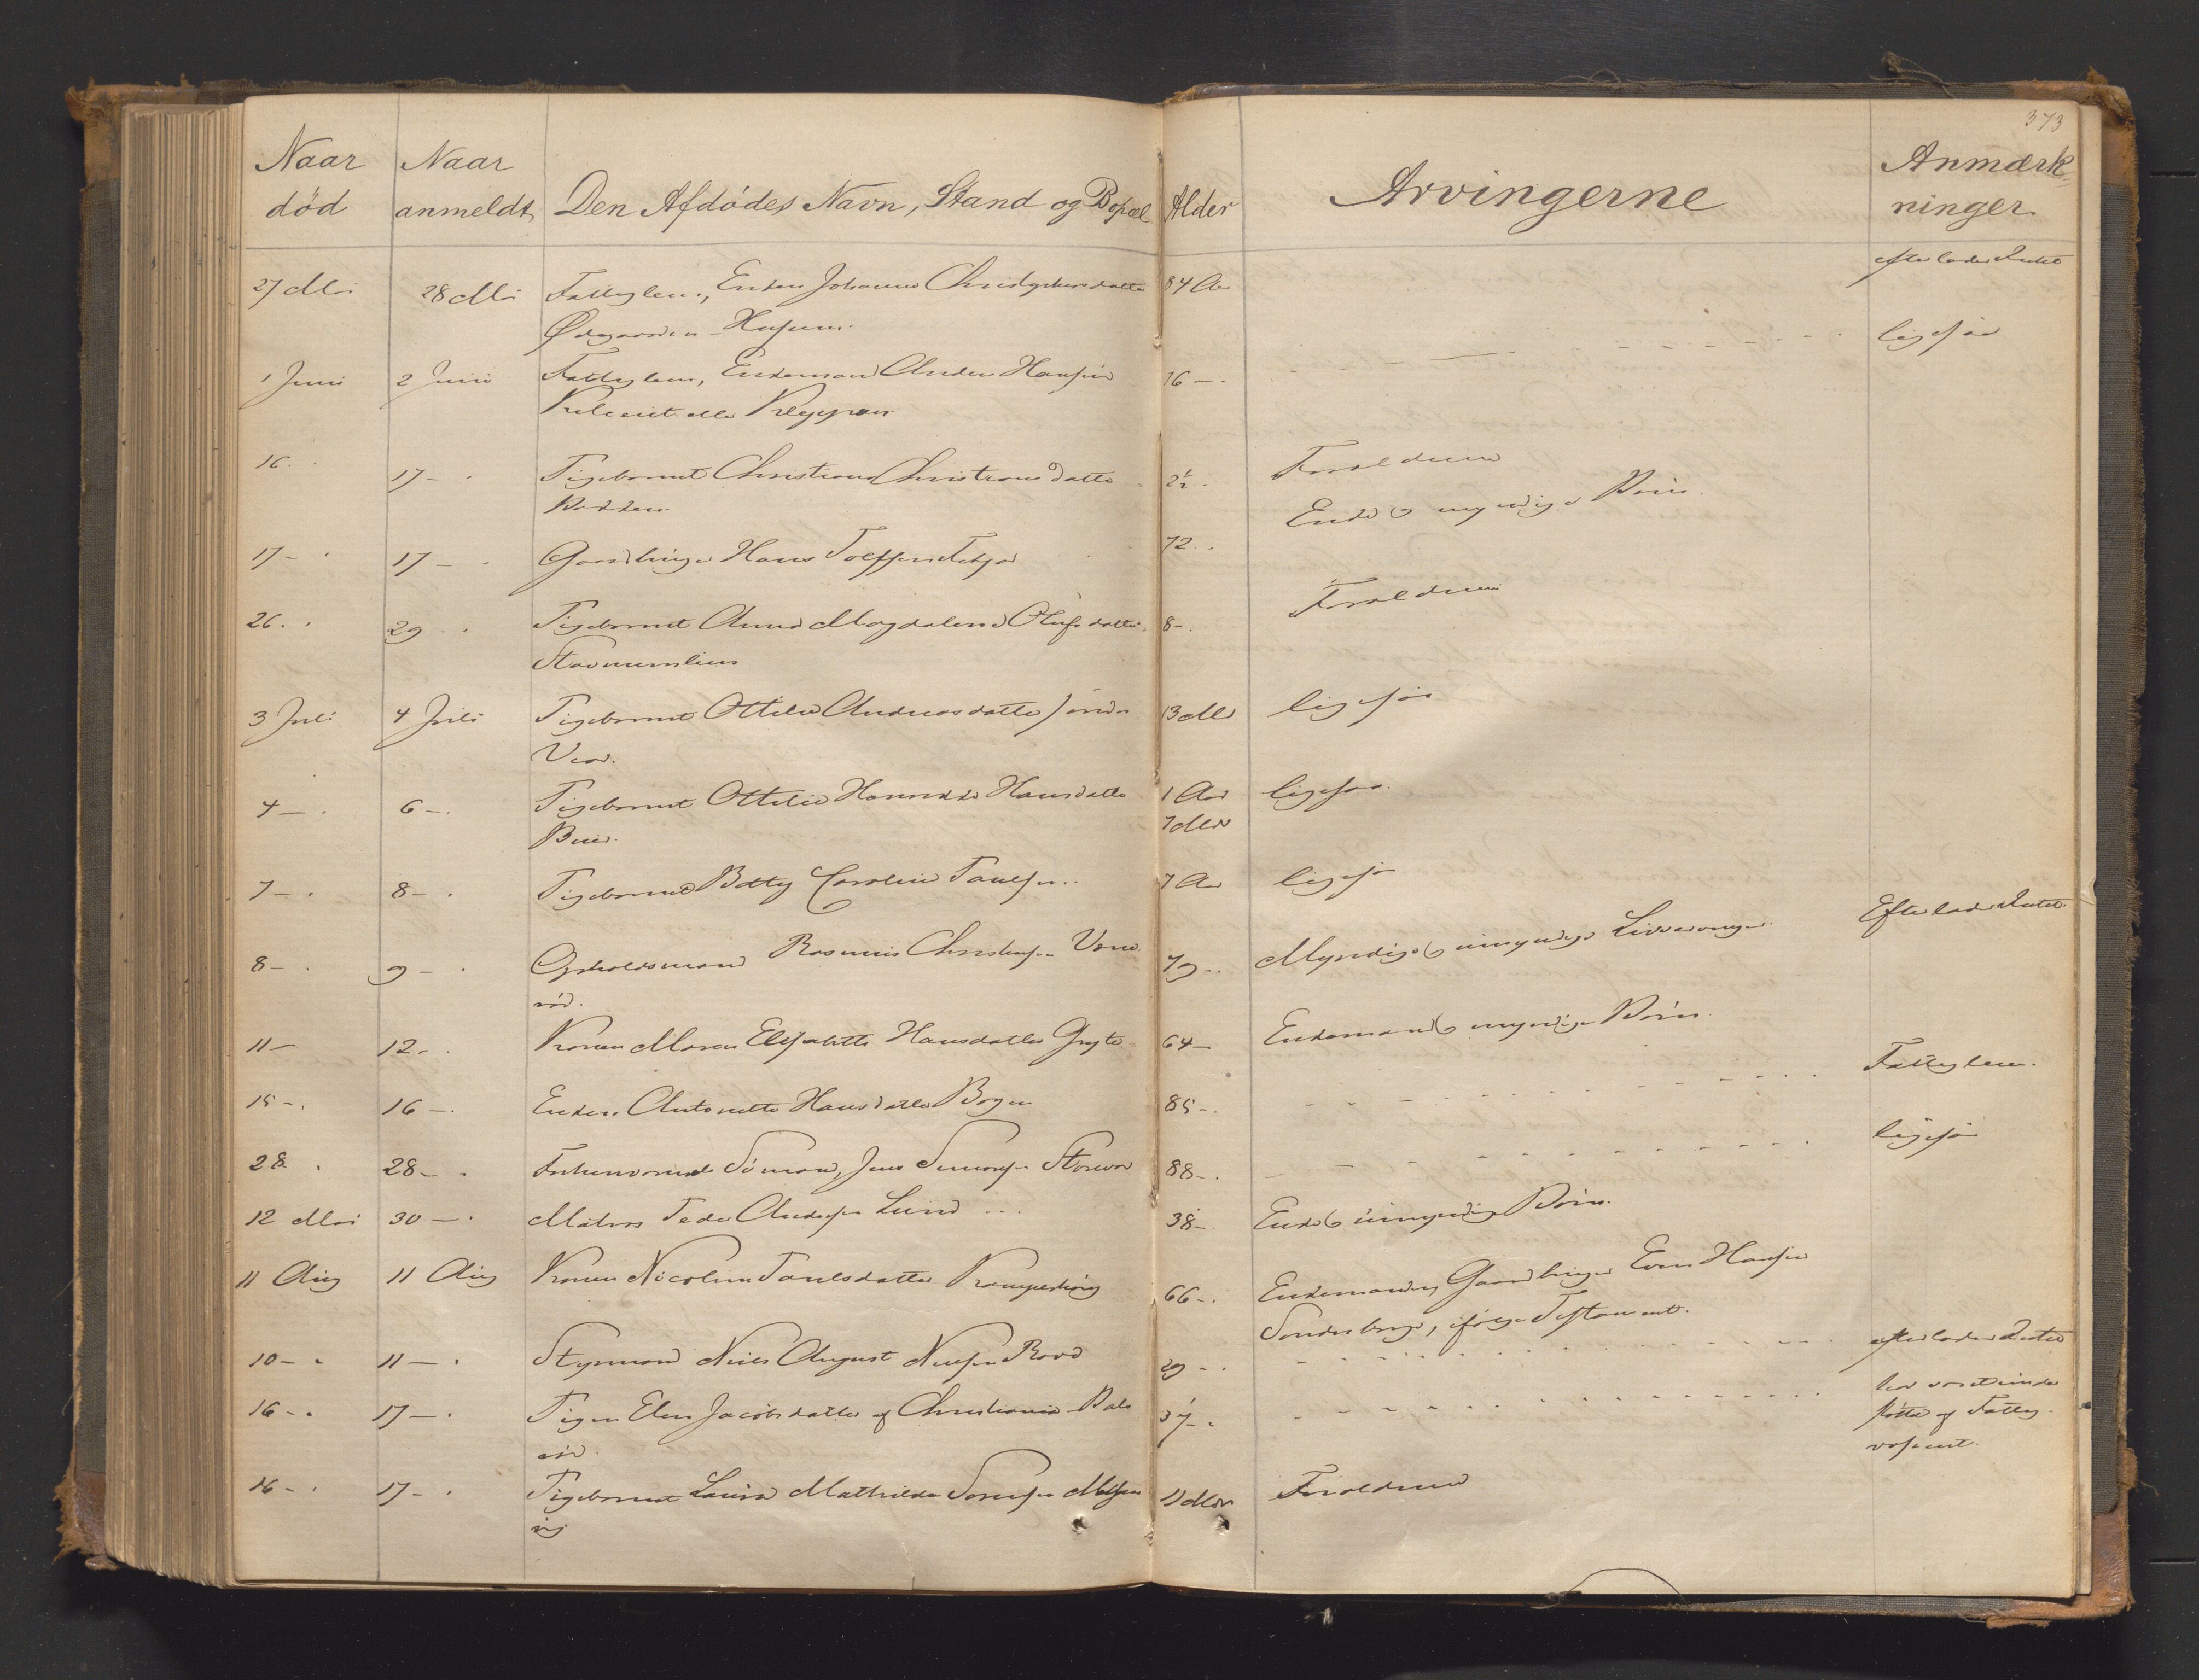 373
Naar død
Naar anmeldt
Den Afdødes Navn, Stand og Bopæl
Alder
Arvingerne
Anmærk-
ninger.
27 Mai 28 Mai Fattiglem, Enken Johanne Christophersdatter 84 Aar efterlader Intet
Ødegaarden
1 Juni 2 Juni Fattiglem, Enkemand Anders Hansen 76 - ligesaa
16 17 - Pigebarnet Christiane Christiansdatter 2½ Forældrene
17 - 17 - Gaardbruger Hans 72 Enke og myndige Børn.
26 29 Pigebarnet Anna Magdalene Olufsdatter 8 - Forældrene
Stavnumlien
3 Juli 4 Juli Pigebarnet Ottilie Andreasdatter Søndre 13 Mdr ligesaa
4 - 6 - Pigebarnet Ottilie Hansdatter 1 Aar ligesaa.
7 Mdr
7 - 8 - Pigebarnet Betty Caroline Paulsen 7 Aar ligesaa
8 - 9 - Opholdsmand Rasmus Christensen 79 Myndige og umyndige Livsarvinger. Efterlader Intet
rød.
11 - 12 - Konen Maren Elisabeth Hansdatter 64 - Enkemand og myndige Børn.
15 - 16 - Enken Antonette Hansdatter Bogen 85 - Fattiglem.
28 28 - Forhenværende Sømand, Jens Simonsen 88 - ligesaa
12 Mai 30 - Matros Peder Andersen Lund 38 - Enke og umyndige Børn.
11 Aug 11 Aug Konen Nicoline Paulsdatter 66 - Enkemanden, Gaardbruger Even Hansen
Sønderhaug, ifølge Testament.
10 - 11 - Styrmand Niels August Nielsen 29 - efterlader Intet
16 - 17 - Pigen Elen Jacobsdatter af Christiania 37 - har været under-
støttet af Fattig-
væsenet.
rød.
16 - 17 - Pigebarnet Laura Mathilde Sørensen 11 Mdr Forældrene
vig